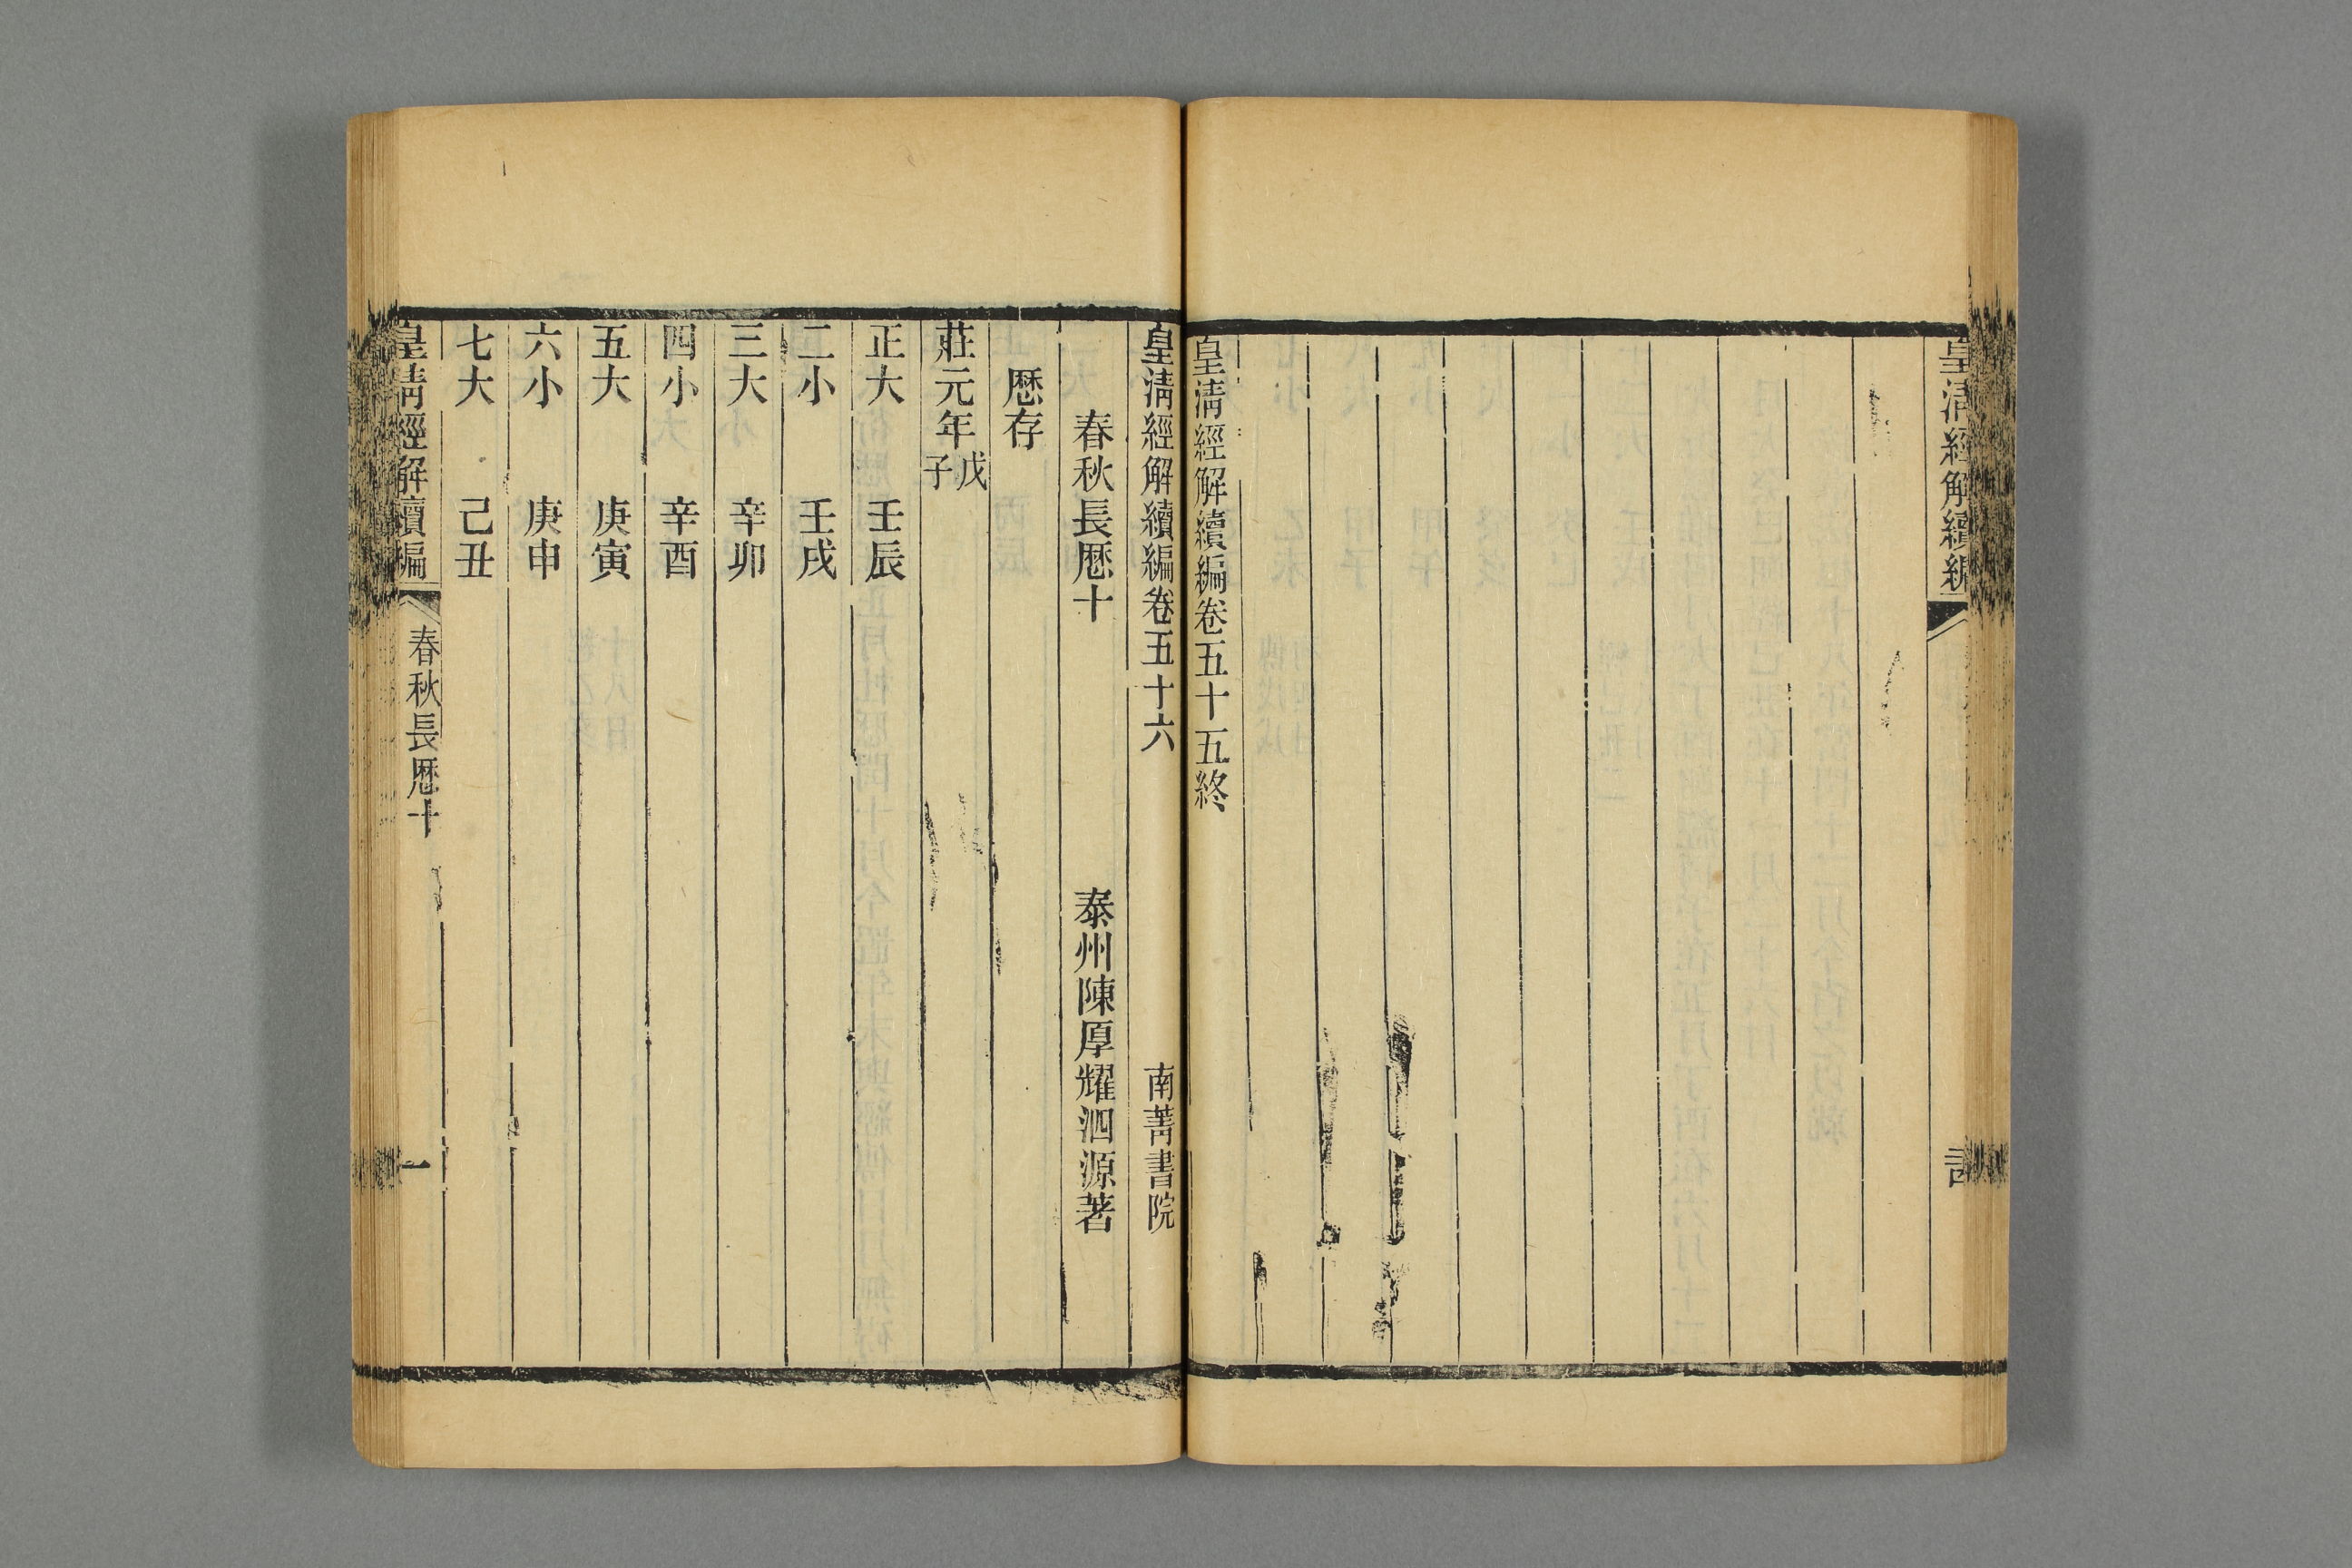 皇清經解續編
皇清經解續編卷五十五終
皇清經解續編卷五十六　南菁書院
春秋長厯十　泰州陳厚耀泗源著
厯存
莊元年戊子
正大　壬辰
二小　壬戌
三大　辛卯
四小　辛酉
五大　庚寅
六小　庚申
七大　己丑
皇清經解續編　春秋長厯十　一